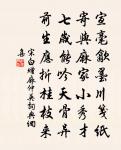 宣毫歙墨川箋紙
寄與麻家小秀才
七歲能吟天骨異
前生應折桂枝來
宋白贈麻仲英詞典網
集